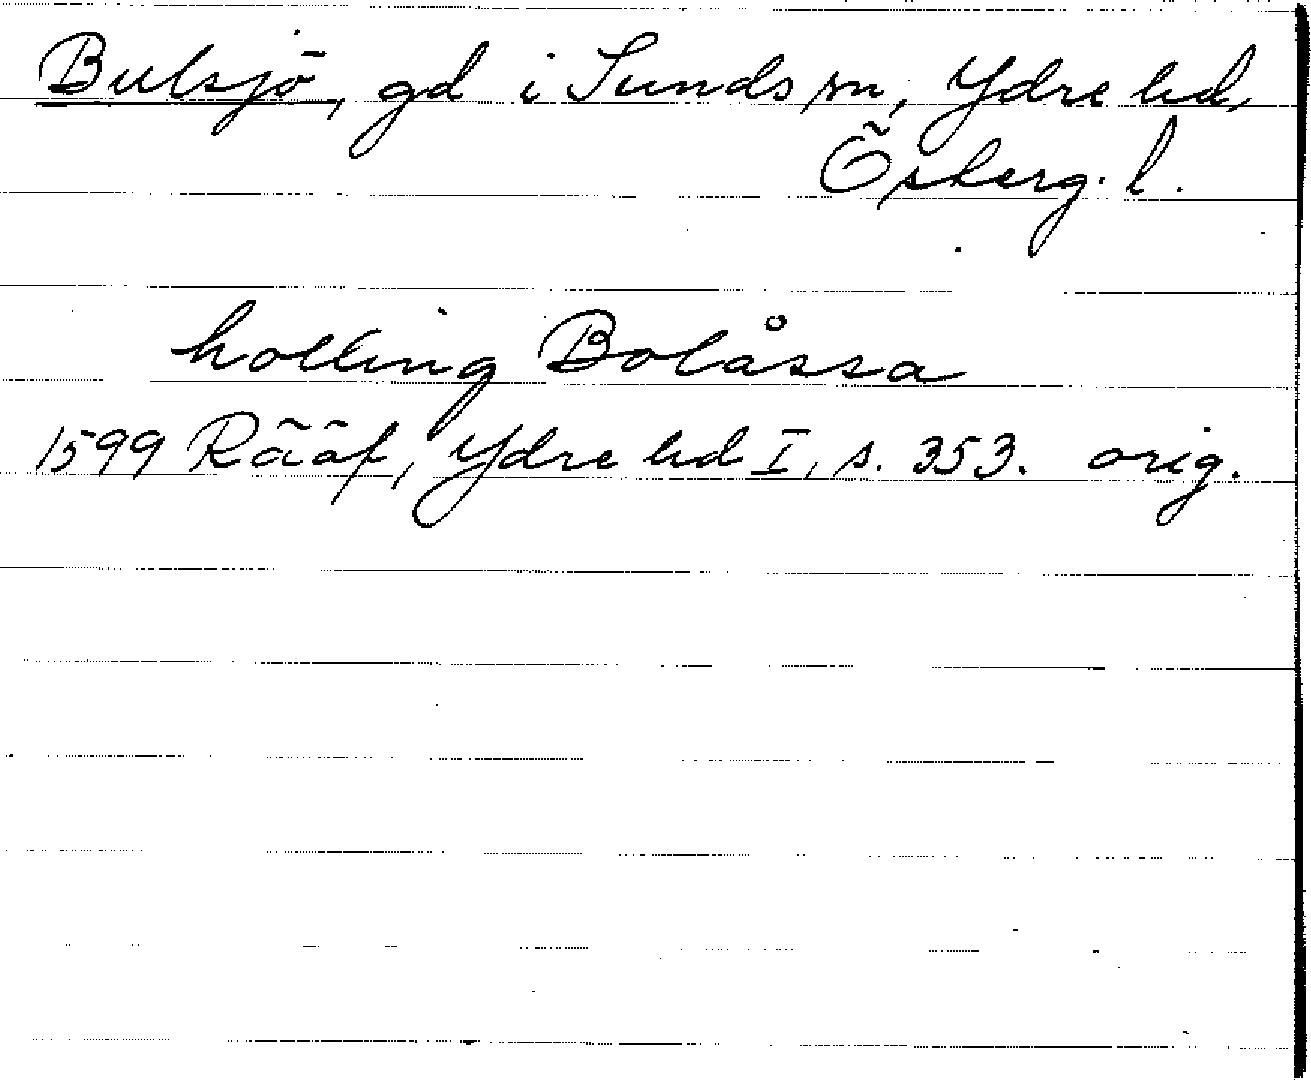 Bulsjö, gd i Sunds sn, Ydre hd,
Ösberg. l.
holling Bolåssa
1599 Rääf, Ydre hd I, s. 353. orig.